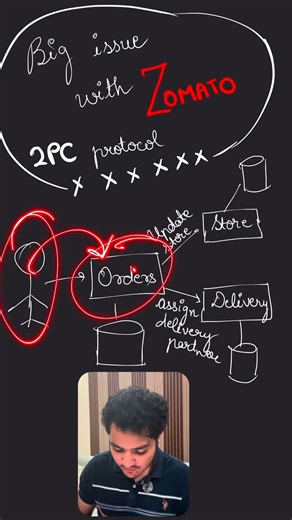 Big issue
with ZOMATO
2PC protocol
x x x x x x
Update
store
Store
Orders
assign
delivery
partner
Delivery